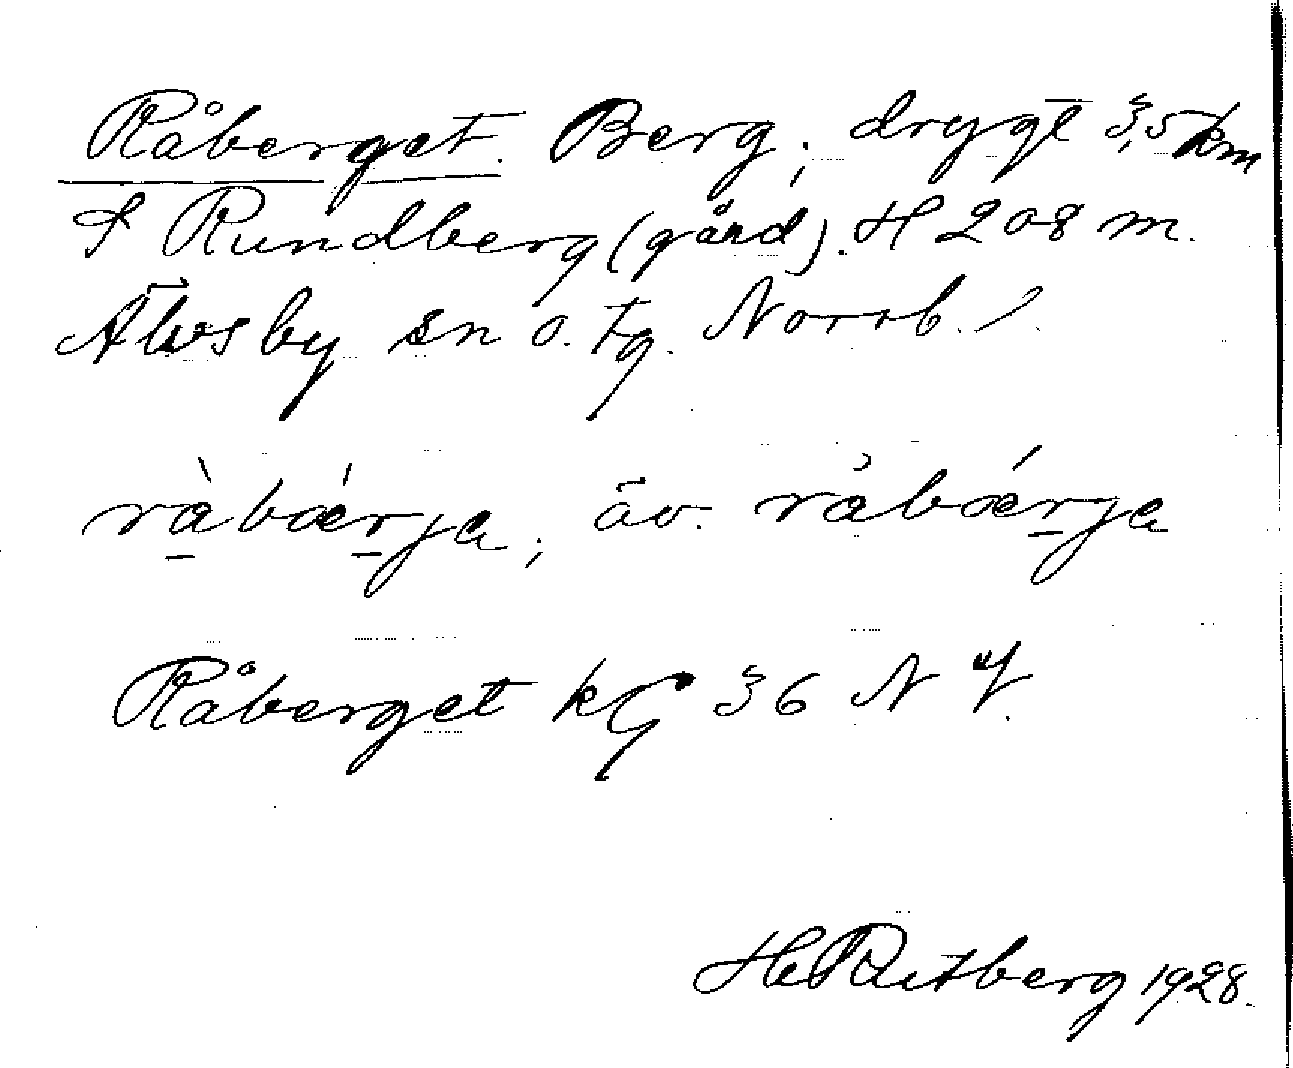 Råberget. Berg, drygt 3,5 km
S Rundberg (gård). H 208 m.
Älvsby sn o. tg. Norrb.
ràbǽrja, äv. råbǽrja
Råberget kG 36 N
H Rutberg 1928.